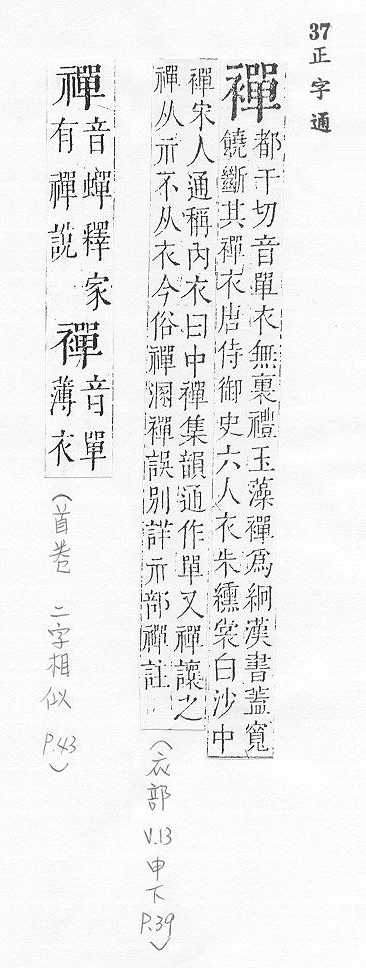 37 正字通
襌 都干切音單衣無裏禮玉藻襌爲絅漢書蓋寬
饒斷其襌衣唐侍御史六人衣朱纁裳白沙中
襌宋人通稱內衣曰中襌集韻通作單又禪讓之
禪从示不从衣今俗禪溷襌誤別詳示部禪註
(衣部 V.13 申下 P.39)
禪 音蟬釋家
有禪說
襌 音單
薄衣
(首卷 二字相似 P.43)